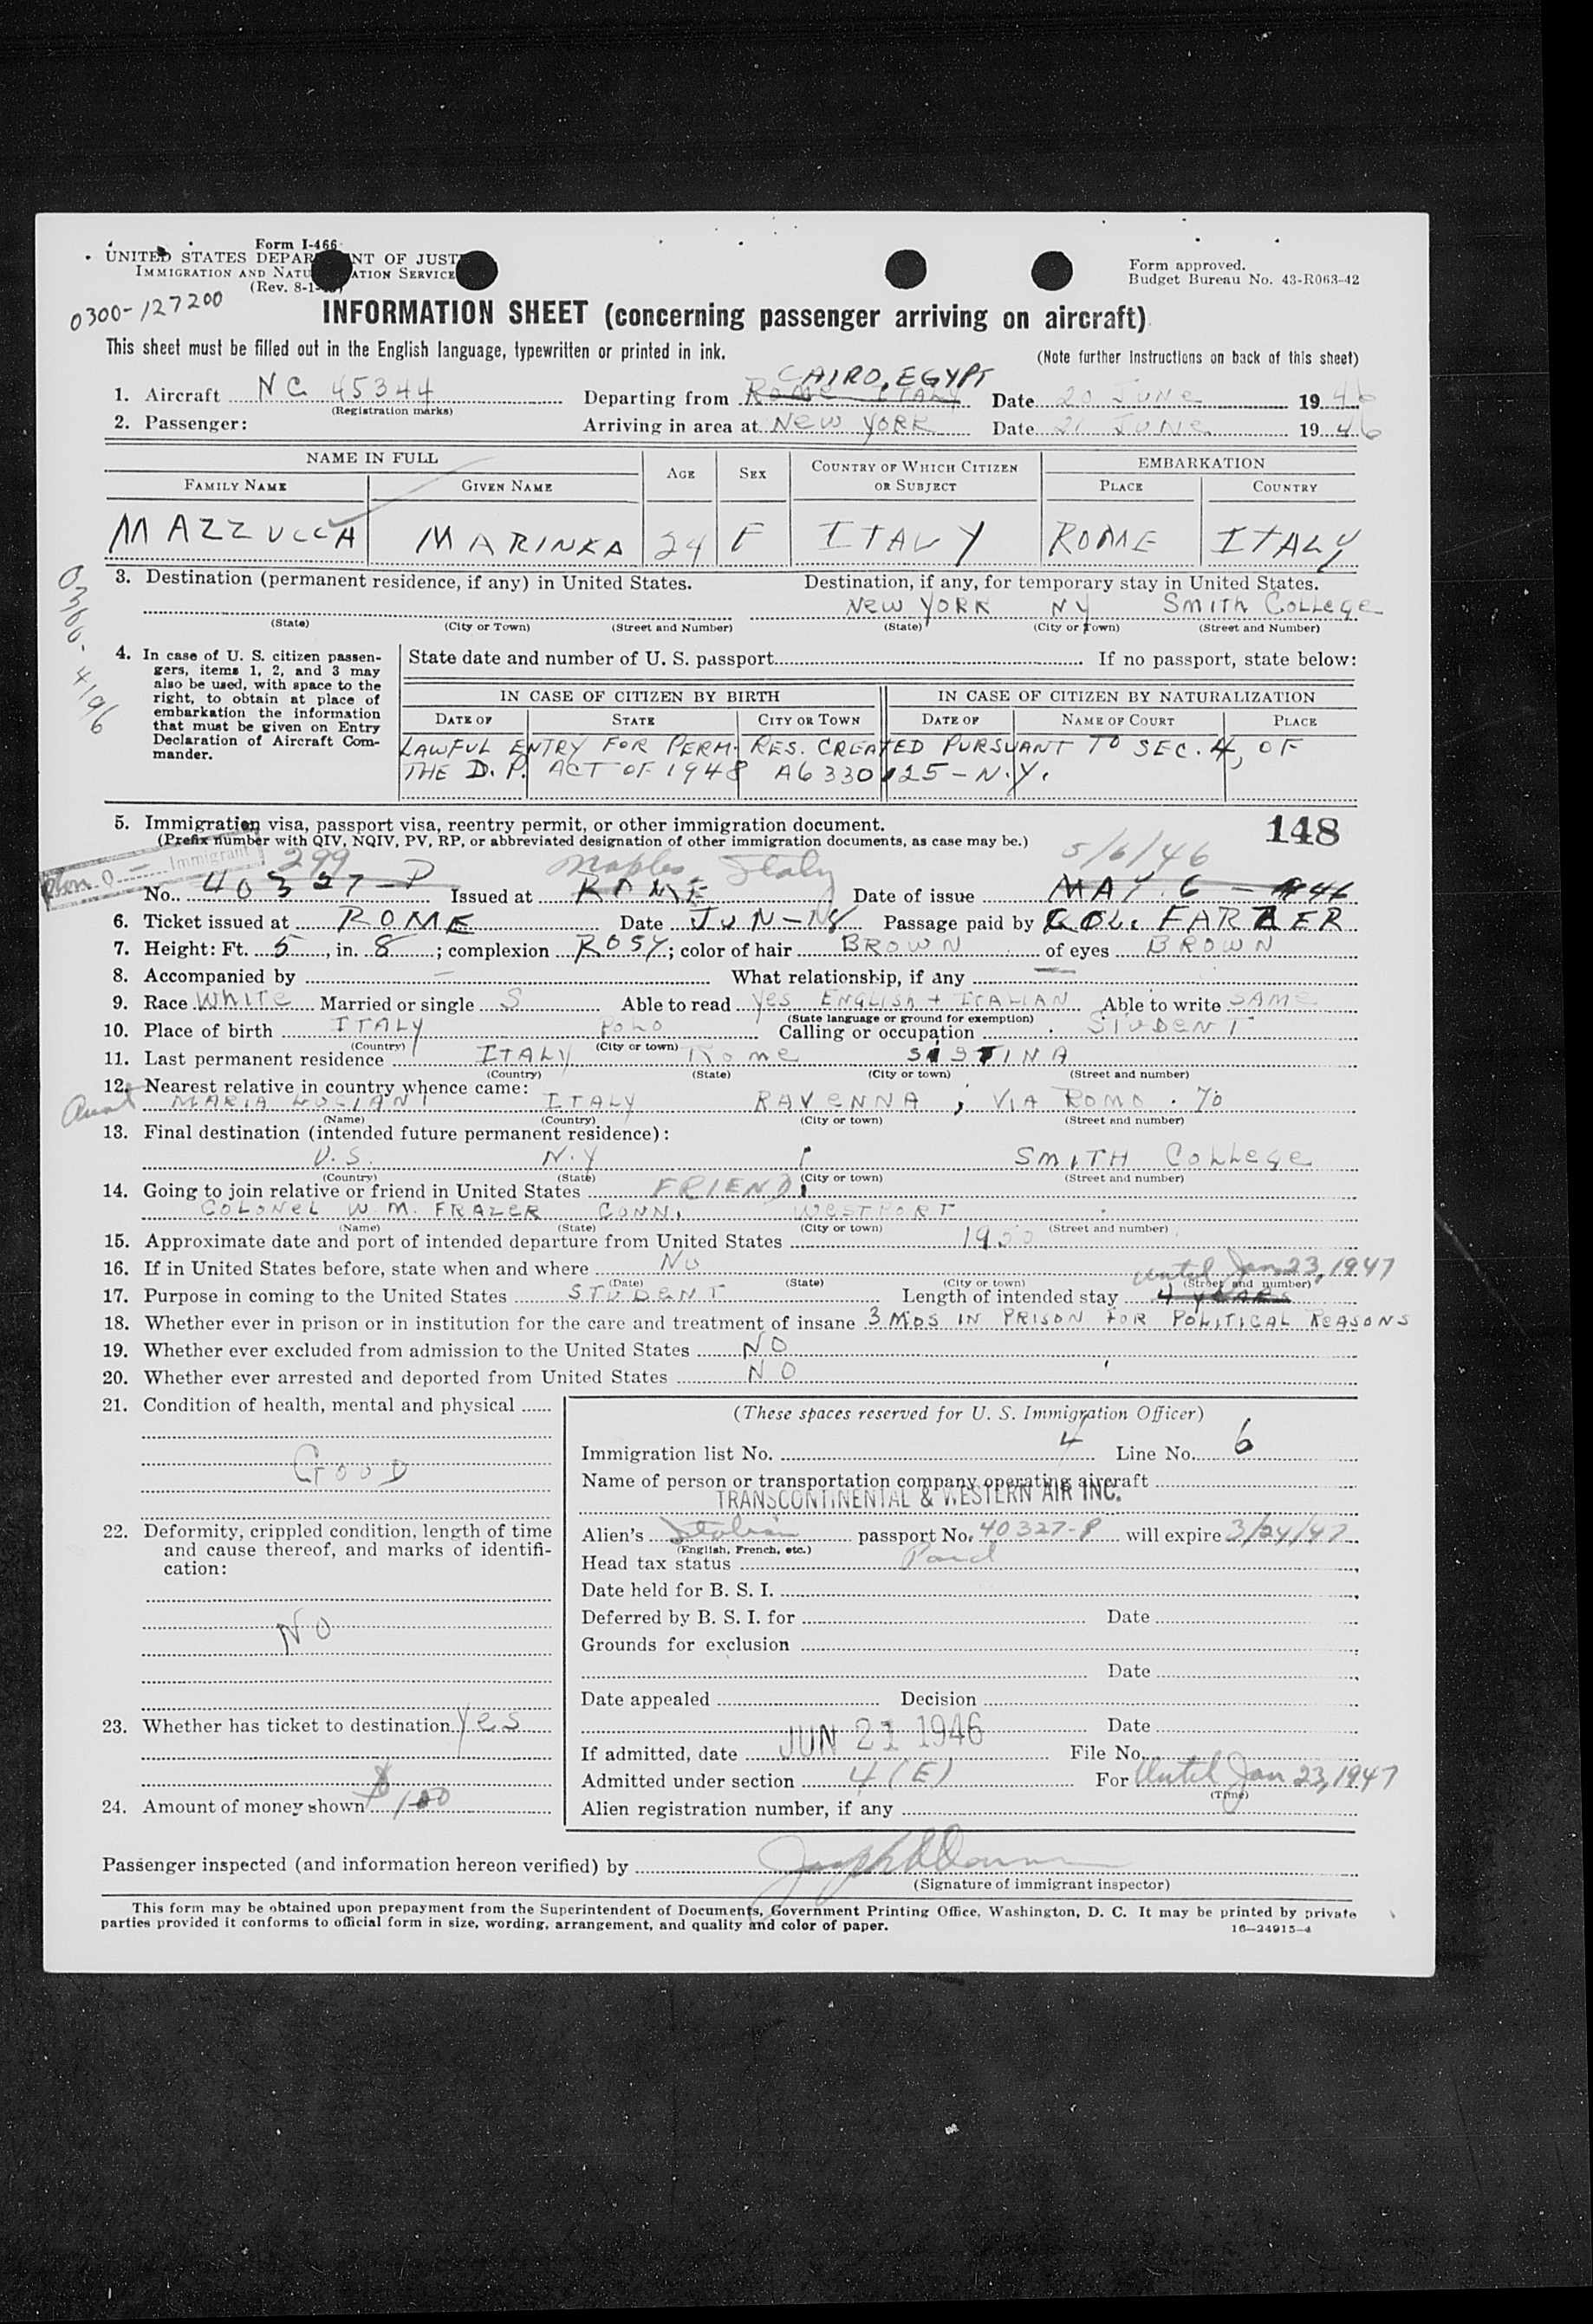 Form I-466
UNITED STATES DEPAR NT OF JUST
IMMIGRATION AND NATU ATION SERVICE
(Rev. 8-1-
Form approved.
Budget Bureau No. 43-R063-42
0300-127200
INFORMATION SHEET (concerning passenger arriving on aircraft)
This sheet must be filled out in the English language, typewritten or printed in ink.
(Note further instructions on back of this sheet)
CAIRO, EGYPT
1. Aircraft NC 45344 Departing from ROME ITALY Date 20 JUNE 1946
(Registration marks)
2. Passenger: Arriving in area at NEW YORK Date 21 JUNE 1946
NAME IN FULL AGE SEX COUNTRY OF WHICH CITIZEN OR SUBJECT EMBARKATION
FAMILY NAME GIVEN NAME PLACE COUNTRY
MAZZUCCA MARINKA 24 F ITALY ROME ITALY
0300-4196
3. Destination (permanent residence, if any) in United States. Destination, if any, for temporary stay in United States.
NEW YORK NY SMITH COLLEGE
(State) (City or Town) (Street and Number) (State) (City or Town) (Street and Number)
4. In case of U. S. citizen passengers, items 1, 2, and 3 may also be used, with space to the right, to obtain at place of embarkation the information that must be given on Entry Declaration of Aircraft Commander.
State date and number of U. S. passport If no passport, state below:
IN CASE OF CITIZEN BY BIRTH IN CASE OF CITIZEN BY NATURALIZATION
DATE OF STATE CITY OR TOWN DATE OF NAME OF COURT PLACE
LAWFUL ENTRY FOR PERM. RES. CREATED PURSUANT TO SEC. 4, OF
THE D.P. ACT OF 1948 A6 330 125 - N.Y.
5. Immigration visa, passport visa, reentry permit, or other immigration document.
(Prefix number with QIV, NQIV, PV, RP, or abbreviated designation of other immigration documents, as case may be.)
148
Immigrant
299 Naples, Italy 5/6/46
No. 40327-P Issued at ROME Date of issue MAY 6 - 946
6. Ticket issued at ROME Date JUN-18 Passage paid by COL. FRAZER
7. Height: Ft. 5, in. 8; complexion ROSY; color of hair BROWN of eyes BROWN
8. Accompanied by — What relationship, if any —
9. Race WHITE Married or single S Able to read YES ENGLISH + ITALIAN Able to write SAME
(State language or ground for exemption)
10. Place of birth ITALY POLO Calling or occupation STUDENT
(Country) (City or town)
11. Last permanent residence ITALY ROME SISTINA
(Country) (State) (City or town) (Street and number)
12. Nearest relative in country whence came:
Aunt MARIA LUCIANI ITALY RAVENNA, VIA ROMA . 70
(Name) (Country) (City or town) (Street and number)
13. Final destination (intended future permanent residence):
U.S. N.Y SMITH COLLEGE
(Country) (State) (City or town) (Street and number)
14. Going to join relative or friend in United States FRIEND,
COLONEL W. M. FRAZER CONN. WESTPORT
(Name) (State) (City or town) (Street and number)
15. Approximate date and port of intended departure from United States 1950
16. If in United States before, state when and where NO
(Date) (State) (City or town) (Street and number)
until Jan 23, 1947
17. Purpose in coming to the United States STUDENT Length of intended stay 4 YEARS
18. Whether ever in prison or in institution for the care and treatment of insane 3 MOS IN PRISON FOR POLITICAL REASONS
19. Whether ever excluded from admission to the United States NO
20. Whether ever arrested and deported from United States NO
21. Condition of health, mental and physical
GOOD
22. Deformity, crippled condition, length of time and cause thereof, and marks of identification:
NO
23. Whether has ticket to destination YES
24. Amount of money shown $100
(These spaces reserved for U. S. Immigration Officer)
Immigration list No. 4 Line No. 6
Name of person or transportation company operating aircraft
TRANSCONTINENTAL & WESTERN AIR INC.
Alien's Italian passport No. 40327-P will expire 3/24/47
(English, French, etc.)
Head tax status Paid
Date held for B. S. I.
Deferred by B. S. I. for Date
Grounds for exclusion
Date
Date appealed Decision
Date
If admitted, date JUN 21 1946 File No.
Admitted under section 4(E) For Until Jan 23, 1947
(Time)
Alien registration number, if any
Passenger inspected (and information hereon verified) by
(Signature of immigrant inspector)
This form may be obtained upon prepayment from the Superintendent of Documents, Government Printing Office, Washington, D. C. It may be printed by private
parties provided it conforms to official form in size, wording, arrangement, and quality and color of paper.
16—24915-4